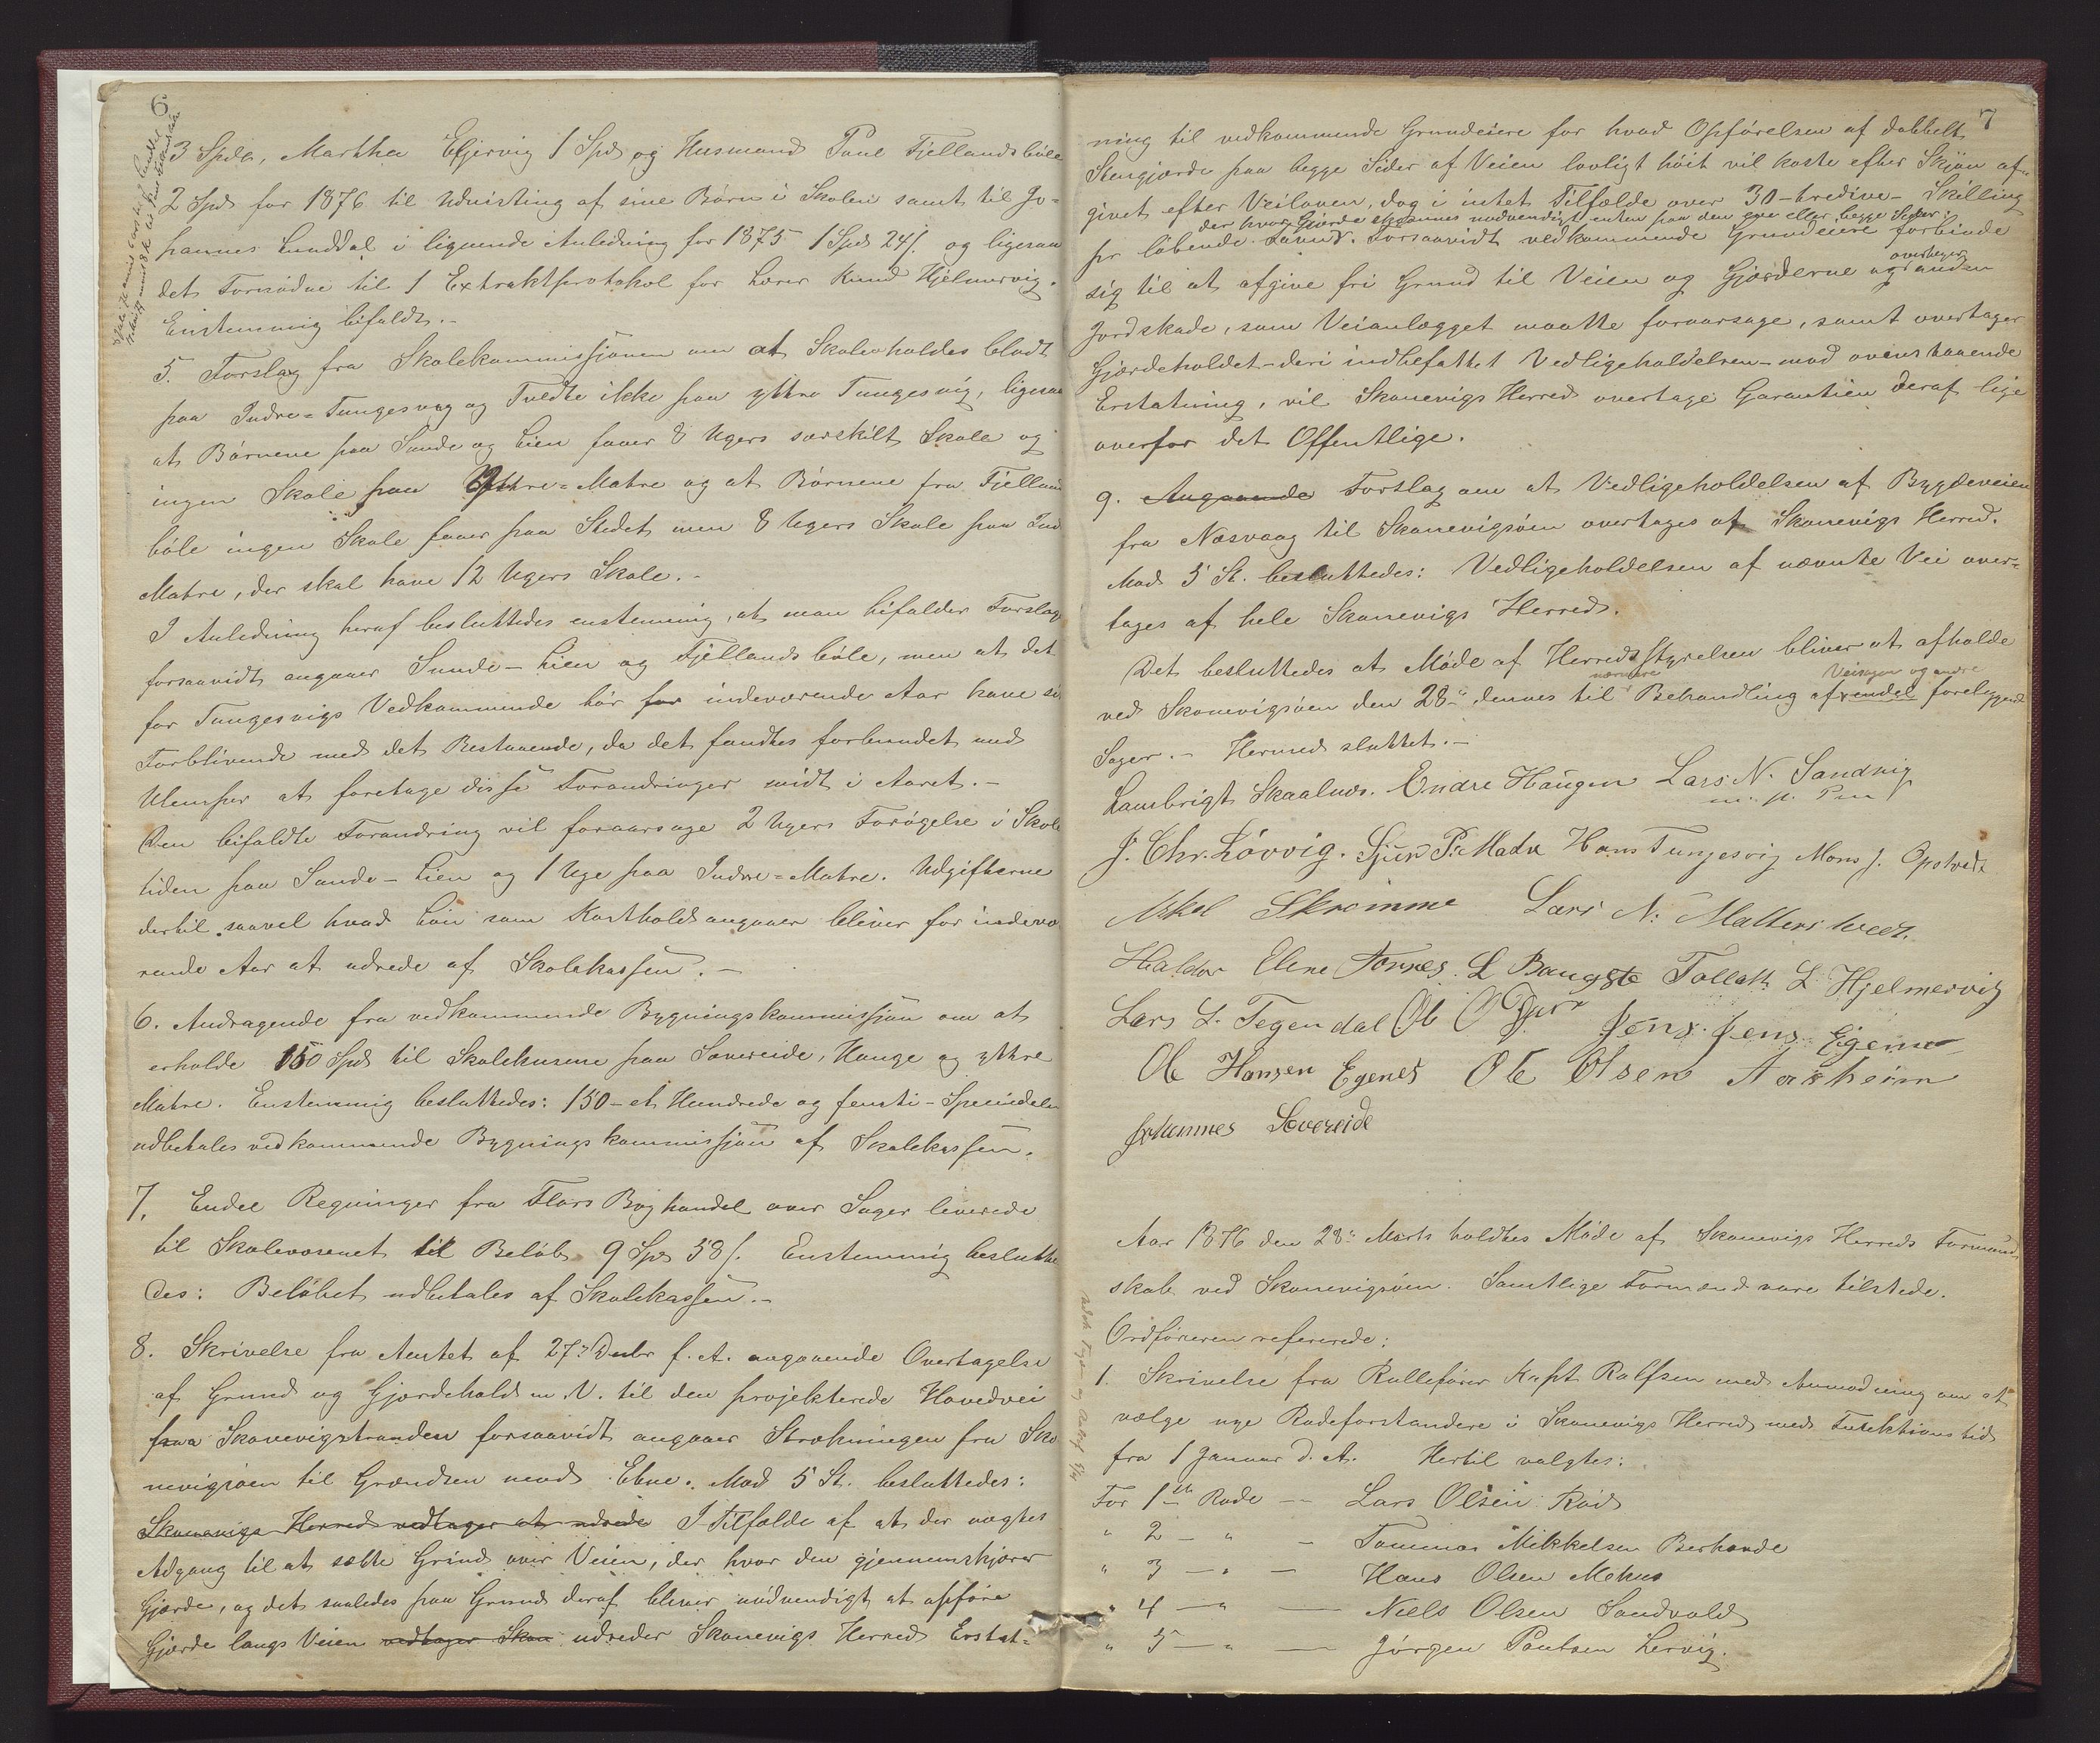 6
3 Spdlr, Martha Eljervig 1 Spd og Husmand Paul Fjellandsböle
2 Spd for 1876 til Udvisting af sine Börn i Skolen samt til Jo-
hannes Lunddal i lignende Anledning for 1875 1 Spd 24 s. og ligesaa
det Fornödne til 1 Extraktprotokol for Lærer Knud Hjelmervig.
Enstemmig bifaldt.-
5. Forslag fra Skolekommissjonen om at Skoleholdes blodt
paa Indre-Tungesvig og Tvedte ikke paa yttre Tungesvig, ligesaa
at Börnene paa Sunde og Lien faaer 8 Ugers særskilt Skole og
ingen Skole paa Yttre-Matre og at Börnene fra Fjellands
böle ingen Skole faaer paa Stedet men 8 Ugers Skole paa Ind
Matre, der skal have 12 Ugers Skole.-
I Anledning heraf besluttedes enstemmig, at man bifalder Forslag
forsaavidt angaaer Sunde-Lien og Fjellandsböle, men at det
for Tungesvigs Vedkommende bör for indeværende Aar have si
Forblivende med det Bestaaende, da det fandtes forbundet med
Ulemper at foretage disse Forandringer midt i Aaret.-
Den bifaldte Forandring vil foraarsage 2 Ugers Forögelse i Skole
tiden paa Sunde-Lien og 1 Uge paa Indre-Matre. Udgifterne
dertil saavel hvad Lön som Kostholdangaaer bliver for indevæ
rende Aar at udrede af Skolekassen.-
6. Andragende fra vedkommende Bygningskommissjon om at
erholde 150 Spd til Skolehusene paa Sævereide, Hauge og yttre
Matre. Enstemmig besluttedes: 150 - et Hundrede og femti - Speciedaler
udbetales vedkommende Bygningskommissjon af Skolekassen.
7. Endel Regninger fra Flors Boghandel over Sager leverede
til Skolevæsenet til Belöb 9 Spd 58 s. Enstemmig beslutte
des: Belöbet udbetales af Skolekassen.-
8. Skrivelse fra Amtet af 27de Decbr f. A. angaaende Overtagelse
af Grund og Gjærdehold m. V. til den projekterede Hovedvei
fraa Skonevigstranden forsaavidt angaaer Strækningen fra Sko
nevigsöen til Grændsen mod Ebne. Mod 5 St. besluttedes:
Skonevigs Herred vedtager at udrede I Tilfælde af at der nægtes
Adgang til at sætte Grind over Veien, der hvor den gjennemskjærer
Gjærde, og det saaledes paa Grund deraf bliver nödvendigt at opföre
Gjærde langs Veien vedtager Skon udreder Skonevigs Herred Erstat-
7
ning til vedkommende Grundeiere for hvad Opförelsen af dobbelt
Stengjærde paa begge Sider af Veien lovligt höit vil koste efter Skjön af-
givet efter Veiloven, dog i intet Tilfælde over 30-tredive-Skilling
der hvor Gjærde skjönnes nödvendigt enten paa den ene eller begge Sider.
pr löbende Favn. Forsaavidt vedkommende Grundeiere forbinde
overtager
sig til at afgive fri Grund til Veien og Gjærderne og anden
Jordskade, som Veianlægget maatte foraarsage, samt overtager
Gjærdeholdet - deri indbefattet Vedligeholdelsen - mod ovenstaaende
Erstatning, vil Skonevigs Herred overtage Garantien deraf lige
overfor det Offentlige.
9. Angaaende Forslag om at Vedligeholdelsen af Bygdeveien
fra Næsvaag til Skonevigsöen overtages af Skonevigs Herred.
Mod 5 St. besluttedes: Vedligeholdelsen af nævnte Vei over-
tages af hele Skonevigs Herred.
Det besluttedes at Möde af Herredsstyrelsen bliver at afholde
nærmere Veisagen og andre
ved Skonevigsöen den 28de dennes til Behandling af endel foreliggende
Sager.- Hermed sluttet.-
Lambrigt Skaalnes. Endre Haugen Lars N. Sandvig
m. p. Pen
J. Chr. Lövvig. Sjur P: Matre Hans Tungesvig Mons J. Opstvedt
Askel Skromme Lars N: Mattersteed.
Haldor Ebne Tornes. L Baugste Tollak L Hjelmervig
Lars L. Tegendal Ole O Jens. Jens. Eigenes
Ole Hansen Egenes Ole Olsen Aarheim
Johannes Sævereide
Aar 1876 den 28de Marts holdtes Möde af Skonevigs Herreds Formand
skab ved Skonevigsöen. Samtlige Formænd vare tilstede.
Ordföreren refererede:
1. Skrivelse fra Rulleförer Kapt. Rolfsen med Anmodning om at
vælge nye Rodeforstandere i Skonevigs Herred med Funktionstid
fra 1 Januar d. A. Hertil valgtes:
For 1ste Rode - Lars Olsen Röd
" 2 - " - Tommas Mikkelsen Berhovde
" 3 - " - Hans Olsen Mehus
" 4 - " - Niels Olsen Sandvold
" 5 - " - Jörgen Poulsen Lervig.